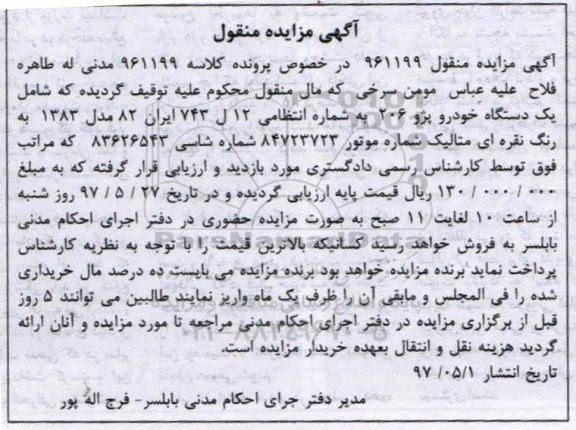 آگهی مزایده منقول
آگهی مزایده منقول ۹۶۱۱۹۹ در خصوص پرونده کلاسه ۹۶۱۱۹۹ مدنی له طاهره
فلاح علیه عباس مومن سرخی که مال منقول محکوم علیه توقیف گردیده که شامل
یک دستگاه خودرو پژو ۲۰۶ به شماره انتظامی ۱۲ ل ۷۴۳ ایران ۸۲ مدل ۱۳۸۳ به
رنگ نقره ای متالیک شماره موتور ۸۴۷۲۳۷۲۳ شماره شاسی ۸۳۶۲۶۵۴۳ که مراتب
فوق توسط کارشناس رسمی دادگستری مورد بازدید و ارزیابی قرار گرفته که به مبلغ
۱۳۰/۰۰۰/۰۰۰ ریال قیمت پایه ارزیابی گردیده و در تاریخ ۲۷ / ۵ / ۹۷ روز شنبه
از ساعت ۱۰ لغایت ۱۱ صبح به صورت مزایده حضوری در دفتر اجرای احکام مدنی
بابلسر به فروش خواهد رسید کسانیکه بالاترین قیمت را با توجه به نظریه کارشناس
پرداخت نماید برنده مزایده خواهد بود برنده مزایده می بایست ده درصد مال خریداری
شده را فی المجلس و مابقی آن را ظرف یک ماه واریز نمایند طالبین می توانند ۵ روز
قبل از برگزاری مزایده در دفتر اجرای احکام مدنی مراجعه تا مورد مزایده و آنان ارائه
گردید هزینه نقل و انتقال بعهده خریدار مزایده است.
تاریخ انتشار ۹۷/۰۵/۱
مدیر دفتر جرای احکام مدنی بابلسر- فرج اله پور